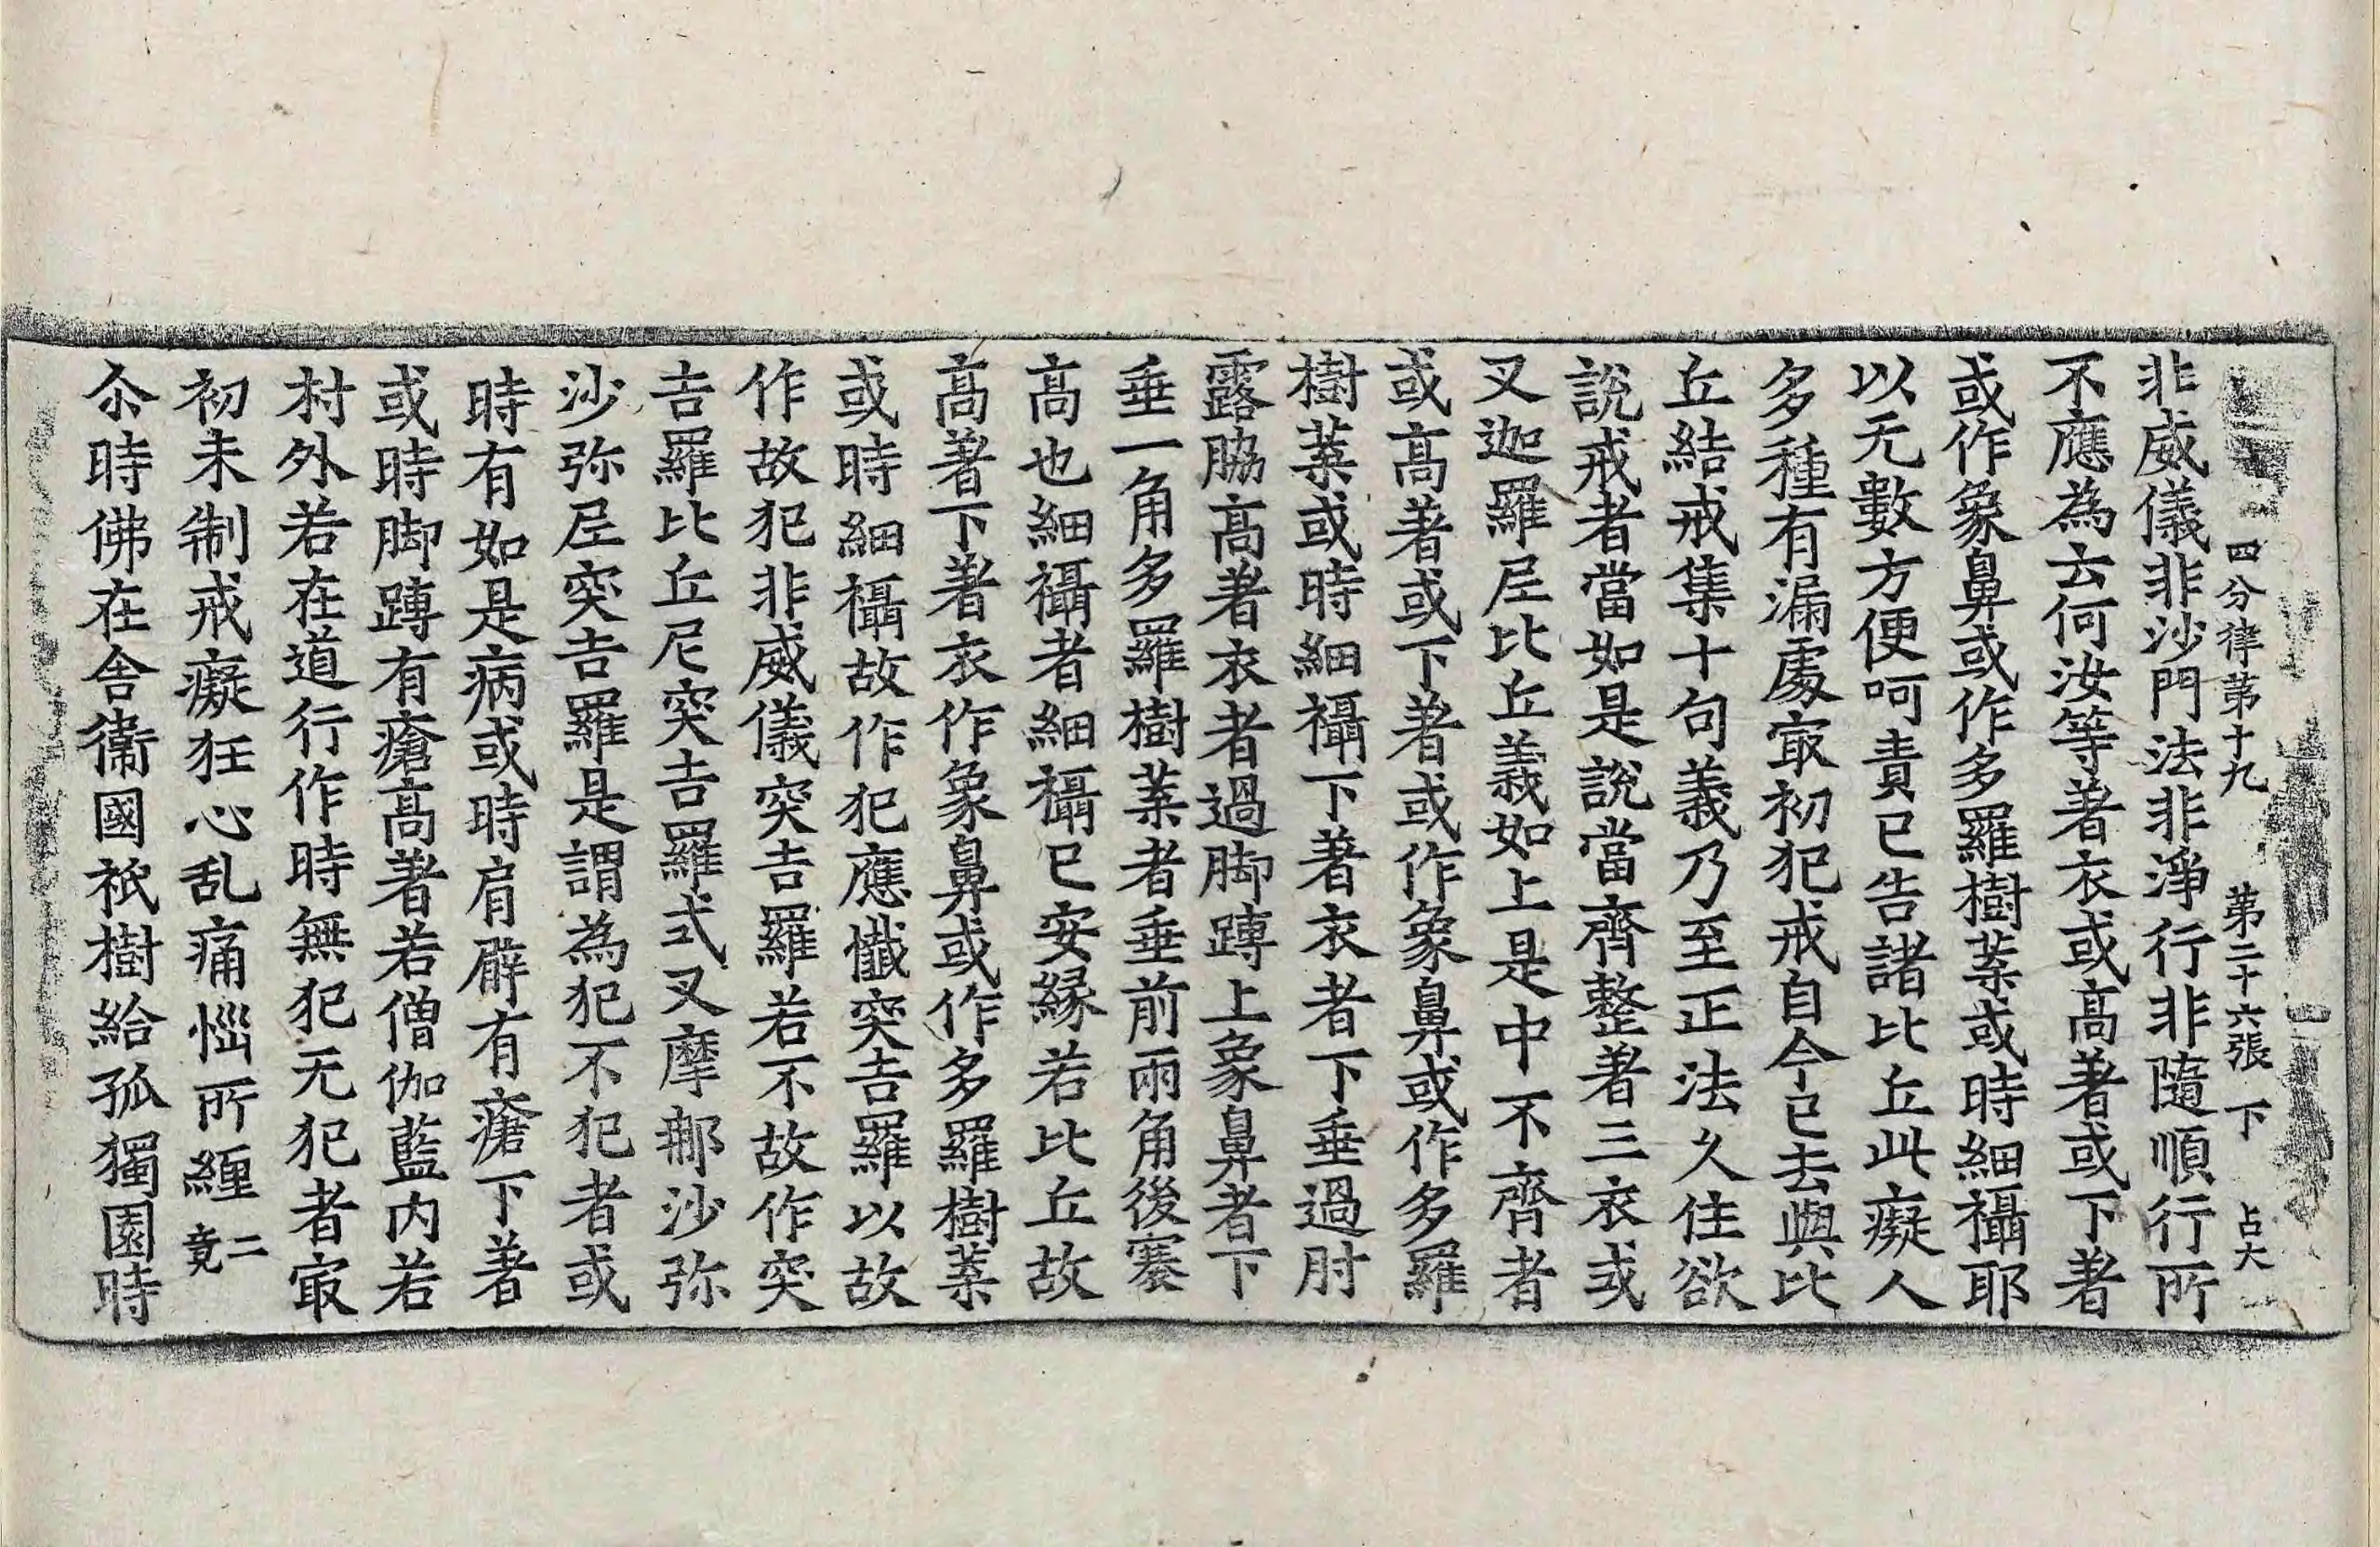 四分律第十九 第二十六張 下 占大
非威儀非沙門法非淨行非隨順行所
不應為云何汝等著衣或高著或下著
或作象鼻或作多羅樹葉或時細襵耶
以无數方便呵責已告諸比丘此癡人
多種有漏處冣初犯戒自今已去與比
丘結戒集十句義乃至正法久住欲
說戒者當如是說當齊整著三衣或
叉迦羅尼比丘義如上是中不齊者
或高著或下著或作象鼻或作多羅
樹葉或時細襵下著衣者下垂過肘
露脇高著衣者過脚䏝上象鼻者下
垂一角多羅樹葉者垂前兩角後褰
高也細襵者細襵已安緣若比丘故
高著下著衣作象鼻或作多羅樹葉
或時細襵故作犯應懺突吉羅以故
作故犯非威儀突吉羅若不故作突
吉羅比丘尼突吉羅式叉摩那沙弥
沙弥尼突吉羅是謂為犯不犯者或
時有如是病或時肩臂有瘡下著
或時脚䏝有瘡高著若僧伽藍内若
村外若在道行作時無犯无犯者冣
初未制戒癡狂心乱痛惱所纏 二竟
尒時佛在舍衞國祇樹給孤獨園時